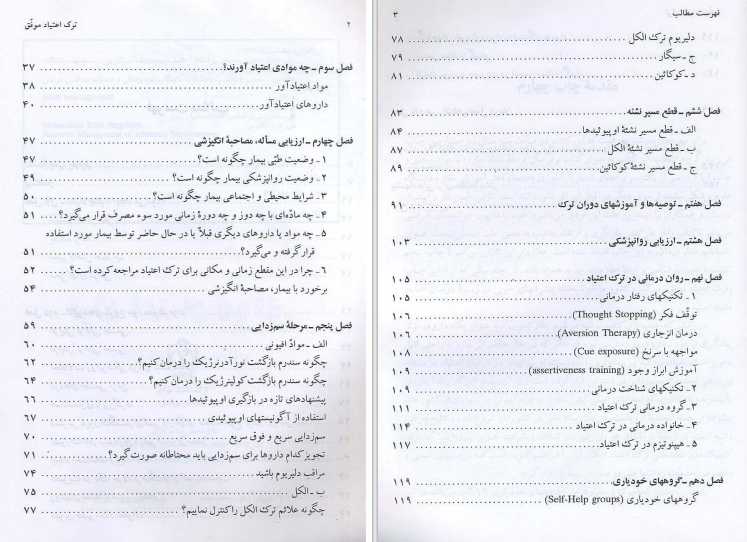 ۲ ترک اعتیاد موفّق
فصل سوم ــ چه موادی اعتیاد آورند؟ ۳۷
مواد اعتیادآور ۳۸
داروهای اعتیادآور ۴۰
فصل چهارم ــ ارزیابی مسأله، مصاحبهٔ انگیزشی ۴۷
۱ ـ وضعیت طبّی بیمار چگونه است؟ ۴۷
۲ ـ وضعیت روانپزشکی بیمار چگونه است؟ ۴۹
۳ ـ شرایط محیطی و اجتماعی بیمار چگونه است؟ ۵۰
۴ ـ چه مادّه‌ای با چه دوز و چه دورهٔ زمانی مورد سوء مصرف قرار می‌گیرد؟ ۵۱
۵ ـ چه مواد یا داروهای دیگری قبلاً یا در حال حاضر توسط بیمار مورد استفاده
قرار گرفته و می‌گیرد؟ ۵۱
۶ ـ چرا در این مقطع زمانی و مکانی برای ترک اعتیاد مراجعه کرده است؟ ۵۲
برخورد با بیمار، مصاحبهٔ انگیزشی ۵۴
فصل پنجم ــ مرحلهٔ سم‌زدایی ۵۹
الف ـ موادّ افیونی ۶۰
چگونه سندرم بازگشت نورآدرنرژیک را درمان کنیم؟ ۶۲
چگونه سندرم بازگشت کولینرژیک را درمان کنیم؟ ۶۴
پیشنهادهای تازه در بازگیری اوپیوئیدها ۶۶
استفاده از آگونیستهای اوپیوئیدی ۶۷
سم‌زدایی سریع و فوق سریع ۷۰
تجویز کدام داروها برای سم‌زدایی باید محتاطانه صورت گیرد؟ ۷۱
مراقب دلیریوم باشید ۷۴
ب ـ الکل ۷۵
چگونه علائم ترک الکل را کنترل نماییم؟ ۷۷
فهرست مطالب ۳
دلیریوم ترک الکل ۷۸
ج ـ سیگار ۷۹
د ـ کوکائین ۸۱
فصل ششم ــ قطع مسیر نشئه ۸۳
الف ـ قطع مسیر نشئهٔ اوپیوئیدها ۸۴
ب ـ قطع مسیر نشئهٔ الکل ۸۷
ج ـ قطع مسیر نشئهٔ کوکائین ۸۹
فصل هفتم ــ توصیه‌ها و آموزشهای دوران ترک ۹۱
فصل هشتم ــ ارزیابی روانپزشکی ۱۰۳
فصل نهم ــ روان درمانی در ترک اعتیاد ۱۰۵
۱ ـ تکنیکهای رفتار درمانی ۱۰۵
توقّف فکر (Thought Stopping) ۱۰۶
درمان انزجاری (Aversion Therapy) ۱۰۶
مواجهه با سرنخ (Cue exposure) ۱۰۸
آموزش ابراز وجود (assertiveness training) ۱۰۹
۲ ـ تکنیکهای شناخت درمانی ۱۰۹
۳ ـ گروه درمانی ترک اعتیاد ۱۱۱
۴ ـ خانواده درمانی در ترک اعتیاد ۱۱۴
۵ ـ هیپنوتیزم در ترک اعتیاد ۱۱۷
فصل دهم ــ گروههای خودیاری ۱۱۹
گروههای خودیاری (Self-Help groups) ۱۱۹